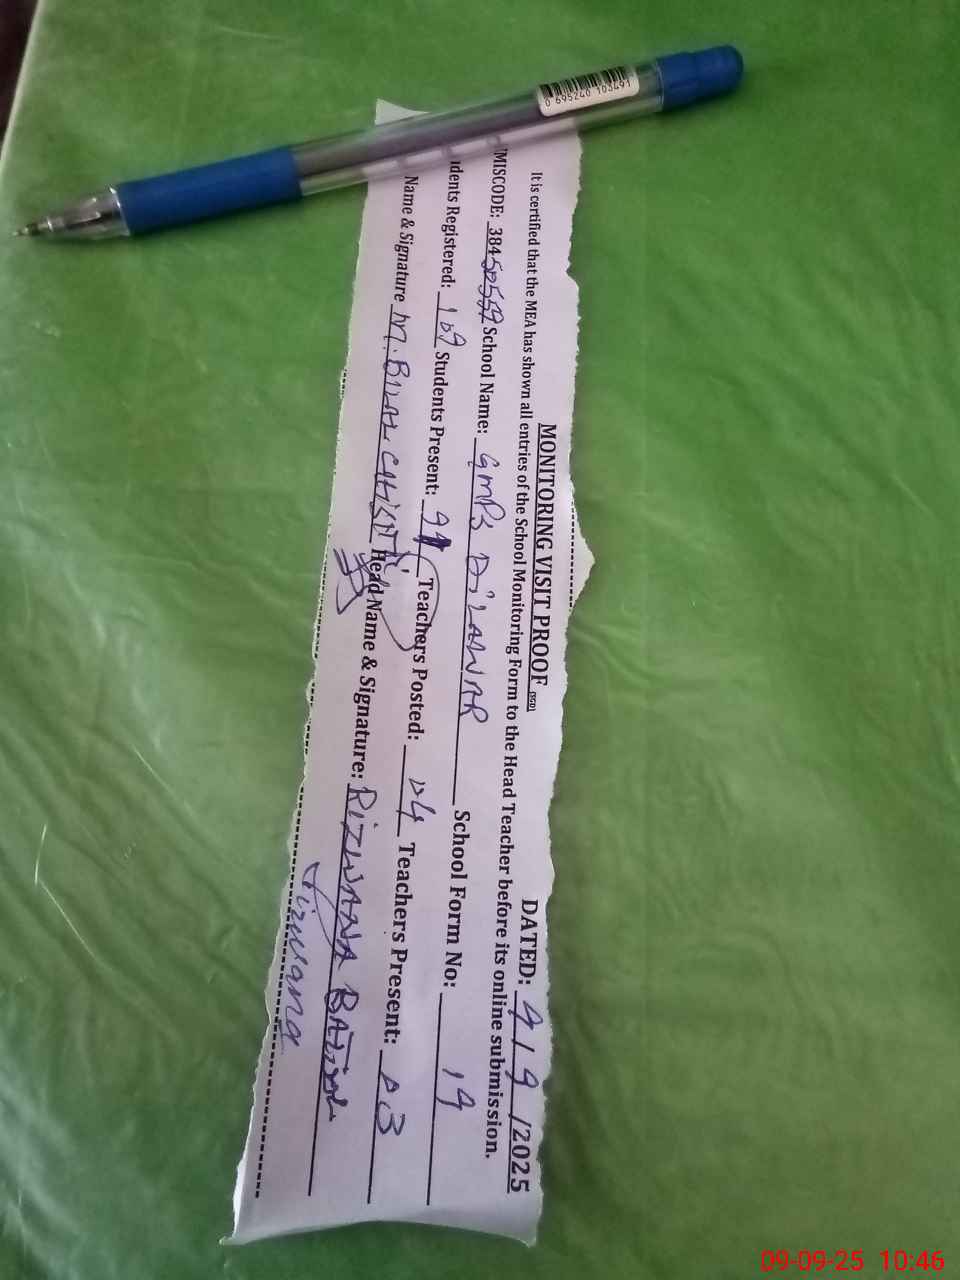 0 695240 103491
MONITORING VISIT PROOF DATED: 9/9/2025
It is certified that the MEA has shown all entries of the School Monitoring Form to the Head Teacher before its online submission.
MISCODE: 384 School Name: GMPS DILAWAR School Form No: 19
dents Registered: 109 Students Present: Teachers Posted: 04 Teachers Present: 03
Name & Signature M. BILAL CHISTI Head Name & Signature: RIZWANA
Rizwana
09-09-25 10:46